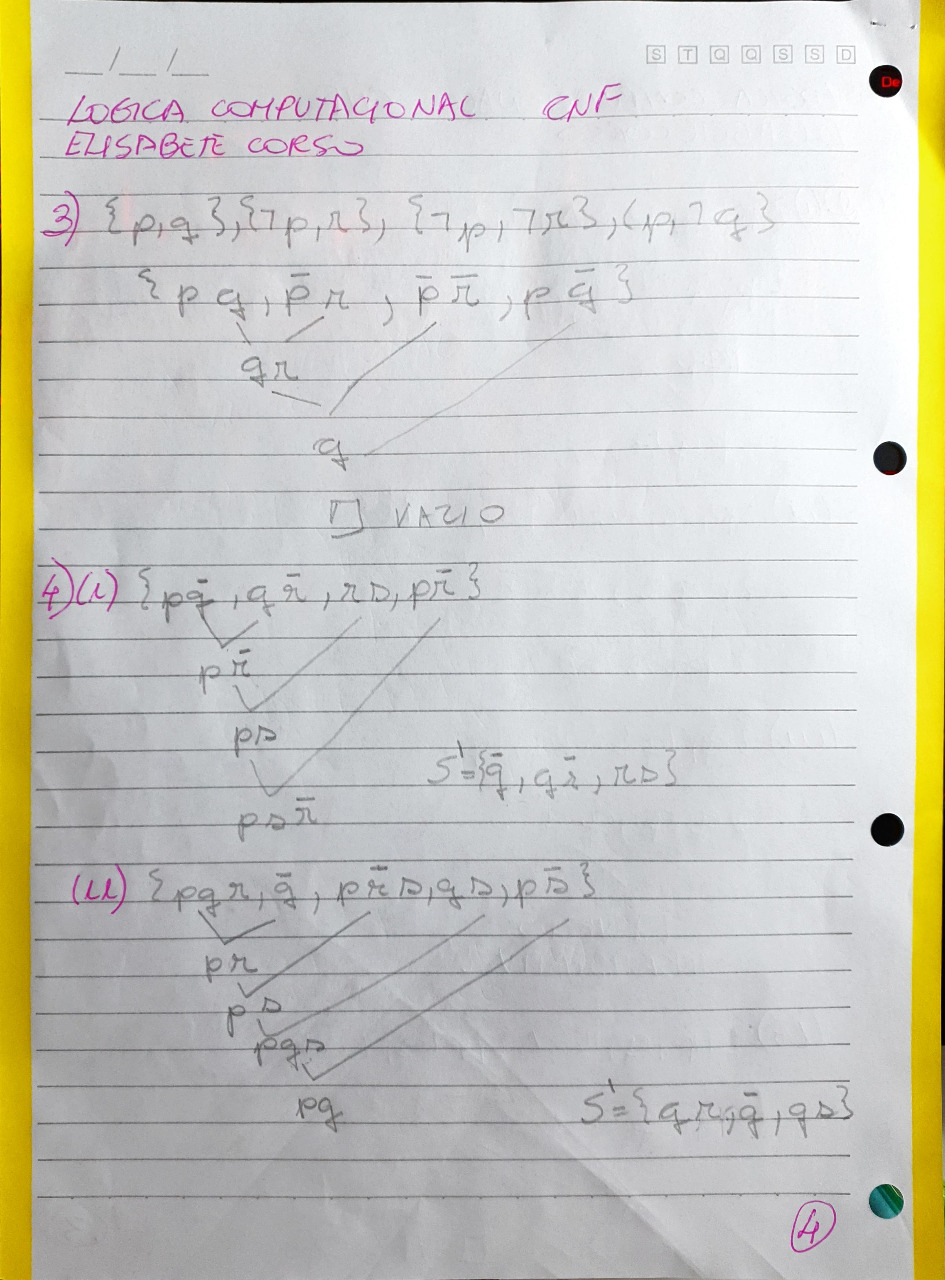 __/__/__ S T Q Q S S D
De
LOGICA COMPUTACIONAL CNF
ELISABETE CORSO
3) {p,q},{¬p,r}, {¬p,¬r},(p,¬q}
{pq, p̄r, p̄r̄, pq̄}
qr
q
□ VAZIO
4)(i) {pq̄, qr̄, rs, pr̄}
pr̄
ps
S'={q̄, qr̄, rs}
psr̄
(ii) {pqr, q̄, pr̄s, qs, ps̄}
pr
ps
pqs
pq
S'={qr, q̄, qs}
4